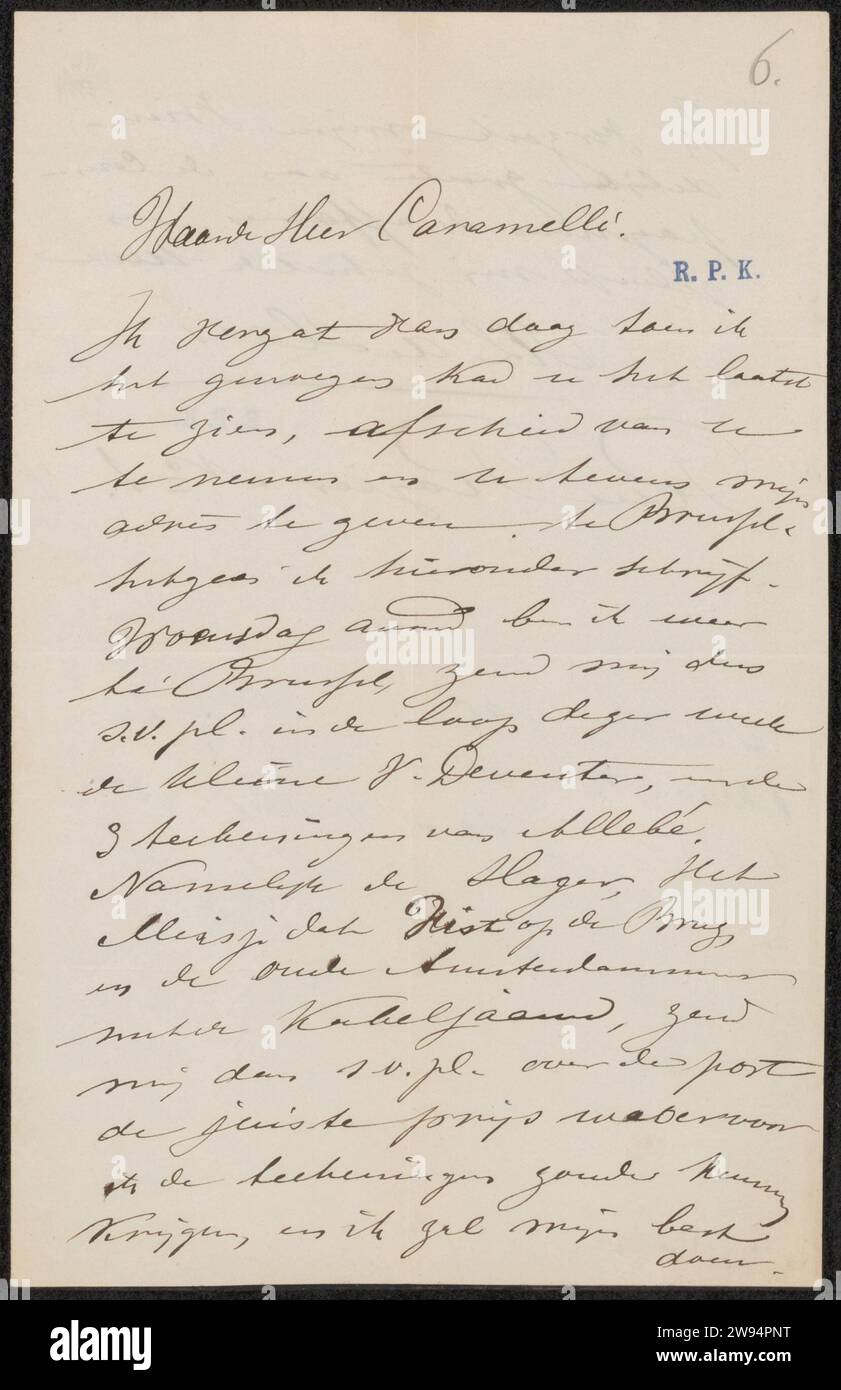 6.
Waarde Heer Caramelli.
R. P. K.
Ik vergat van daag toen ik
het genoegen had u het laatst
te zien, afscheid van u
te nemen en u tevens mijn
adres te geven te Brussel
hetgeen ik hieronder schrijf.
Woensdag avond ben ik weer
te Brussel, zend mij dus
s.v.pl. in de loop dezer week
de kleine V. Deventer, en de
3 teekeningen van Allebé,
Namelijk de Slager, Het
Meisje dat Vist op de Brug
en de oude Amsterdammer
met de Kabeljaauw, zend
mij dan s.v.pl. over de post
de juiste prijs waarvoor
ik de teekeningen zoude kunnen
Krijgen, en ik zal mijn best
doen.
alamy
Image ID: 2W94PNT
www.alamy.com